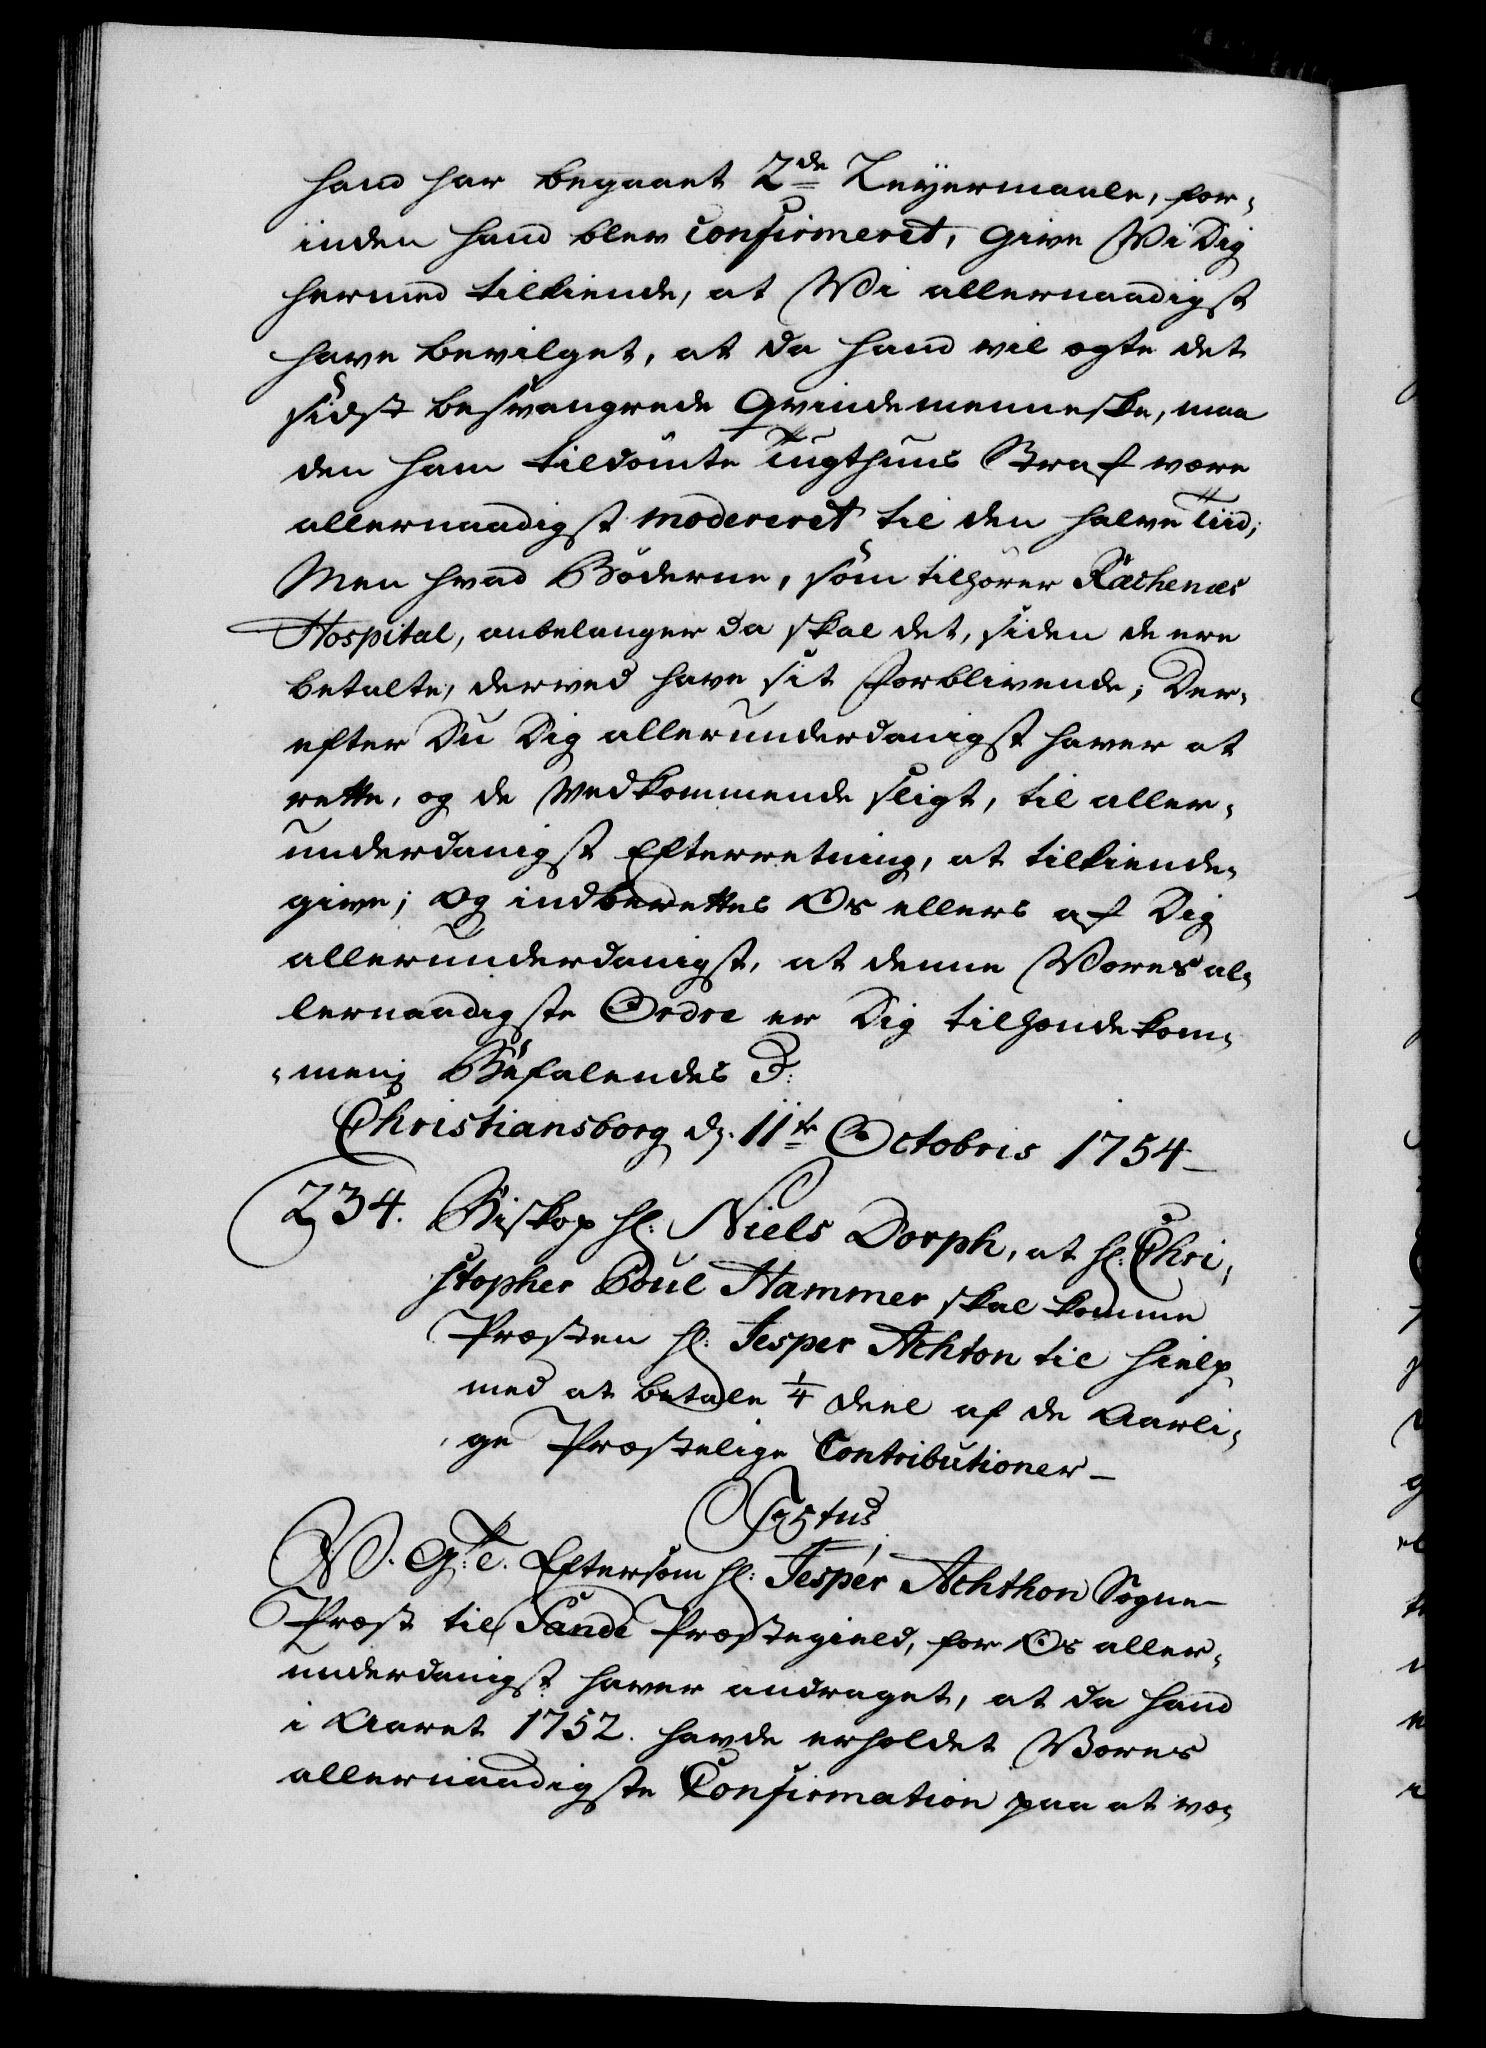 hand har begaaet 2de Leyermaale, for-
inden hand blev confirmeret, give Wi Dig
hermed tilkiende, at Wi allernaadigst
have bevilget, at da hand vil ægte det
sidst besvangrede Qvindemenneske, maa
den ham tildömte Tugthuus Straf være
allernaadigst modereret til den halve Tiid;
Men hvad Böderne, som tilhörer Rachenæs
Hospital, anbelanger da skal det, siden de ere
betalte, derved have sit Forblivende; Der-
efter Du Dig allerunderdanigst haver at
rette, og de Vedkommende sligt, til aller-
underdanigst Efterretning, at tilkiende-
give; Og indberettes Os ellers af Dig
allerunderdanigst, at denne Vores al-
lernaadigste Ordre er Dig tilhændekom-
-men; Befalendes D:
Christiansborg d. 11te Octobris 1754
234. Biskop Hl: Niels Dorph, at Hl: Chri-
stopher Poul Hammer skal komme
Præsten Hl: Jesper Achton til Hielp
med at betale 1/4 Deel af de Aarli-
ge Præstelige Contributioner
V. G: T. Eftersom Hl: Jesper Achthon Sogne-
Præst til Sande Præstegield, for Os aller-
underdanigst haver andraget, at da hand
i Aaret 1752. havde erholdet Vores
allernaadigste Confirmation paa at væ-